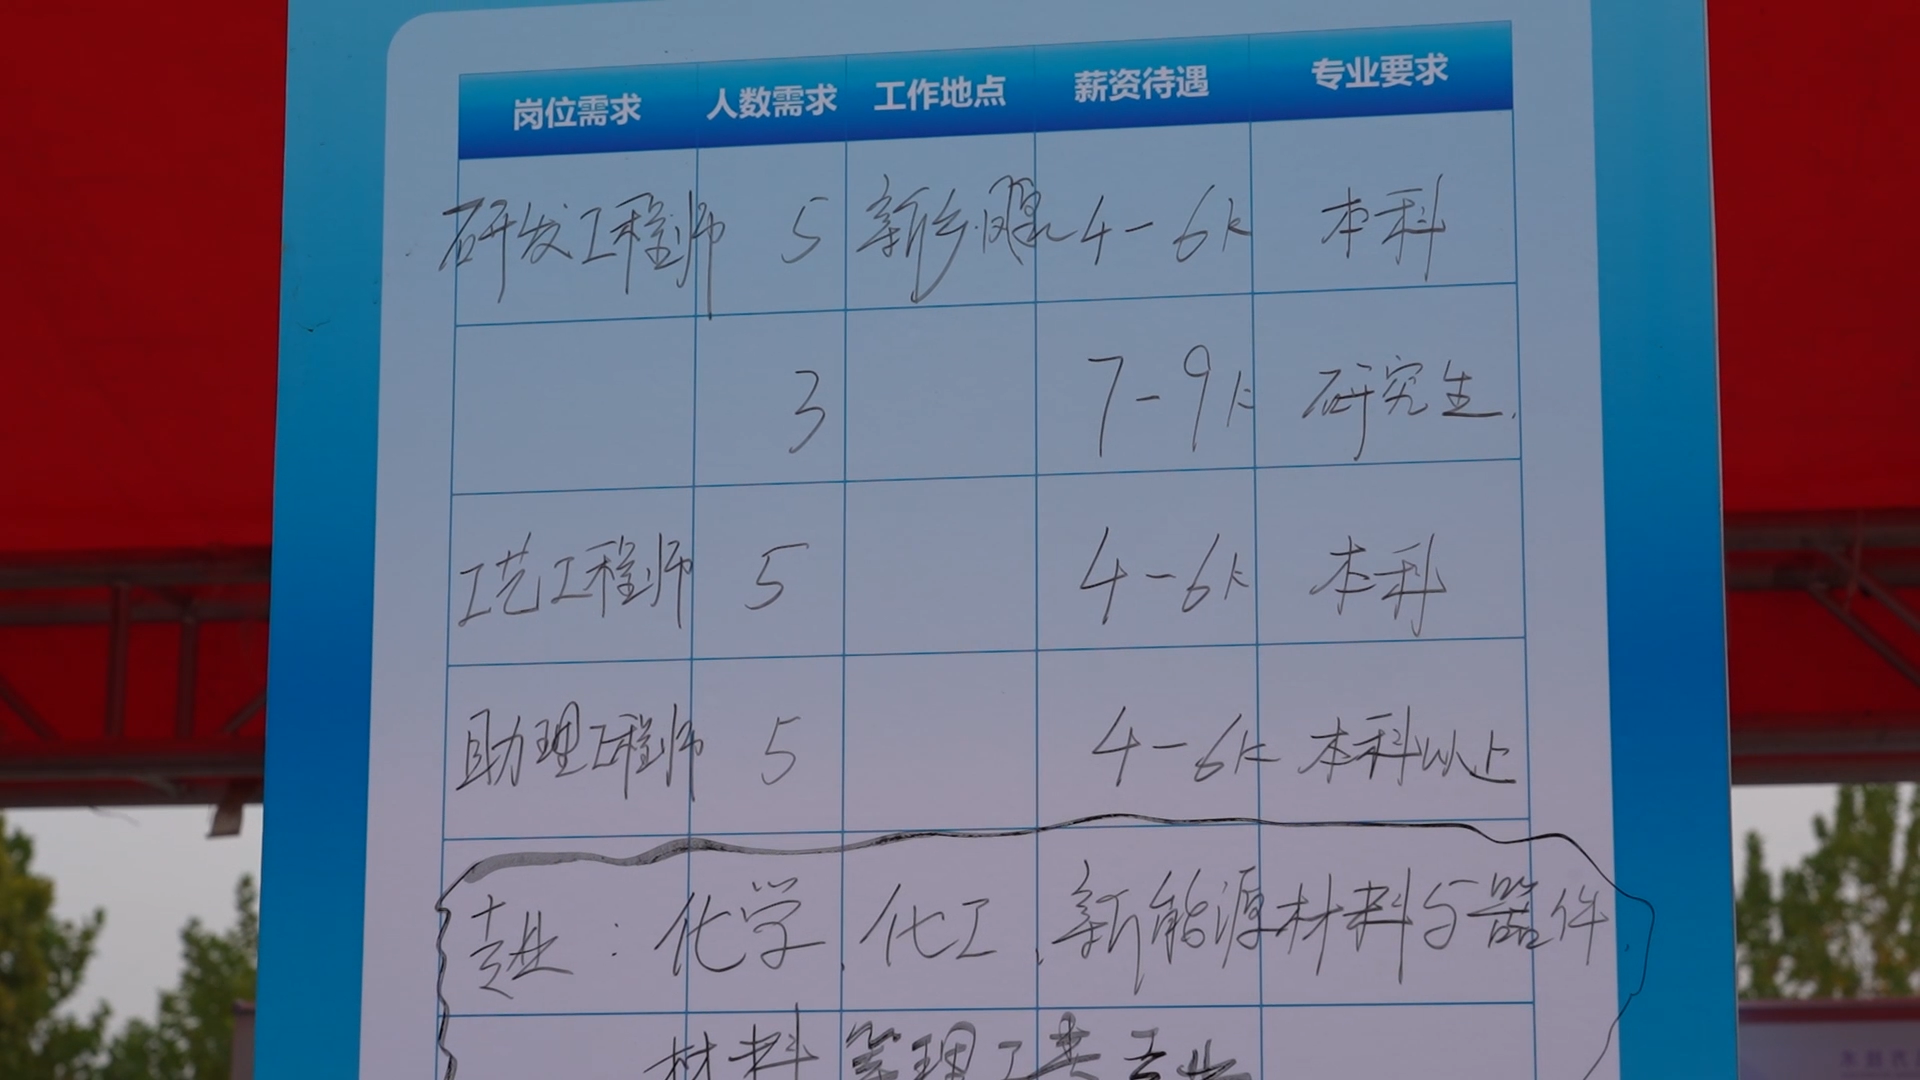 岗位需求 人数需求 工作地点 薪资待遇 专业要求
研发工程师 5 新乡 4-6k 本科
3 7-9k 研究生.
工艺工程师 5 4-6k 本科
助理工程师 5 4-6k 本科以上
专业：化学、化工、新能源材料与器件、
材料等理工类专业